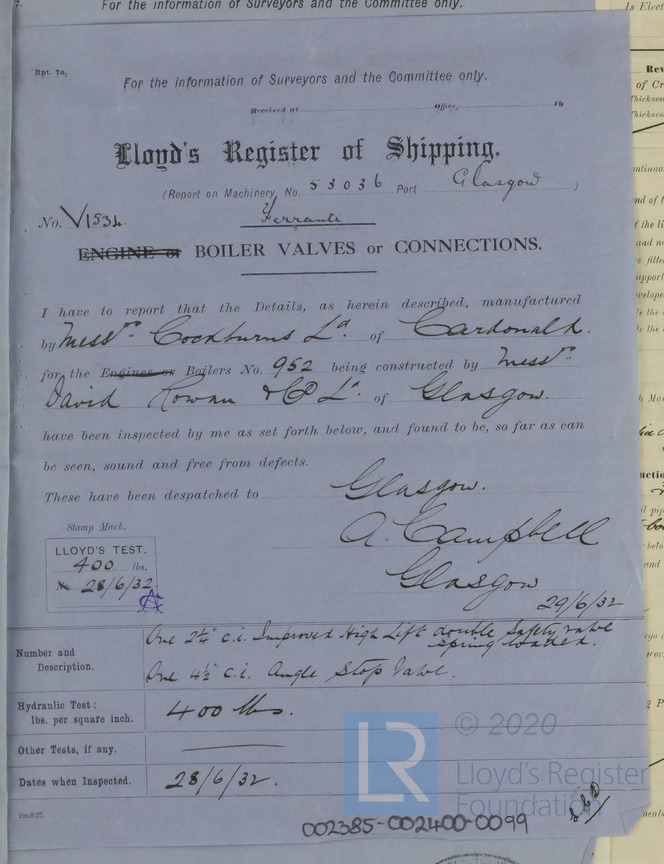 7.
For the information of Surveyors and the Committee only.
Rpt. 7a.
For the information of Surveyors and the Committee only.
Received at Office, 19
Lloyd's Register of Shipping.
(Report on Machinery, No. 53036 Port Glasgow)
No. V1534 Ferranti
ENGINE or BOILER VALVES or CONNECTIONS.
I have to report that the Details, as herein described, manufactured
by Messrs. Cockburns Ld. of Cardonald.
for the Engines or Boilers No. 952 being constructed by Messrs.
David Rowan & Co Ld. of Glasgow.
have been inspected by me as set forth below, and found to be, so far as can
be seen, sound and free from defects.
These have been despatched to Glasgow.
A. Campbell
Glasgow
29/6/32
Stamp Mark.
LLOYD'S TEST.
400 lbs.
No. 28/6/32
Number and Description.
One 2¼" c.i. Improved High Lift double Safety valve
spring loaded.
One 4½" c.i. Angle Stop Valve.
Hydraulic Test: lbs. per square inch.
400 lbs.
Other Tests, if any.
Dates when Inspected.
28/6/32.
LR
© 2020
Lloyd's Register
Foundation
002385-002400-0099